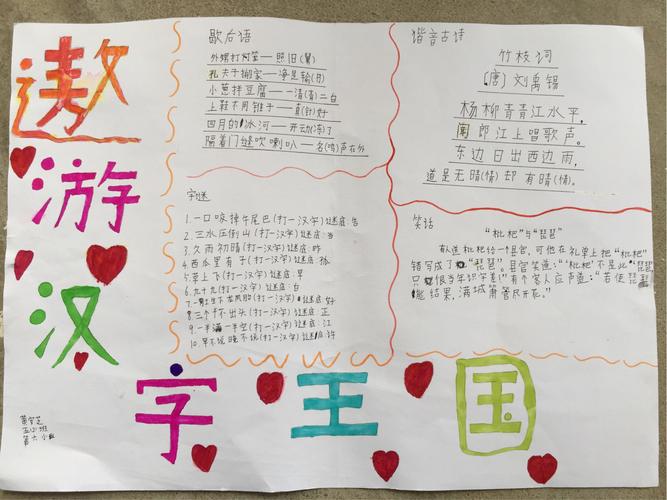 遨
游
汉
字 王 国
歇后语
外甥打灯笼——照旧(舅)
孔夫子搬家——净是输(书)
小葱拌豆腐——一清(青)二白
上鞋不用锥子——真(针)好
四月的冰河——开动(冻)了
隔着门缝吹喇叭——名(鸣)声在外
谐音古诗
竹枝词
(唐)刘禹锡
杨柳青青江水平,
闻郎江上唱歌声。
东边日出西边雨,
道是无晴(情)却有晴(情)。
字谜
1.一口咬掉牛尾巴(打一汉字)谜底:告
2.三水压倒山(打一汉字)谜底:当
3.久雨初晴(打一汉字)谜底:昨
4.西瓜里有子(打一汉字)谜底:
5.草上飞(打一汉字)谜底:早
6.九十九(打一汉字)谜底:白
(打一汉字)谜底:好
8.三个千不出头(打一汉字)谜底:正
9.一半满一半空(打一汉字)谜底:江
10.早不说晚不说(打一汉字)谜底:许
笑话
“枇杷”与“琵琶”
有人送枇杷给一个县官,可他在礼单上把“枇杷”
错写成了“琵琶”。县官笑道:“‘枇杷’不是此‘琵琶’
只恨当年识字差!”有个客人应声道:“若使琵琶
能结果,满城箫管尽开花。”
五(2)班
第六小组